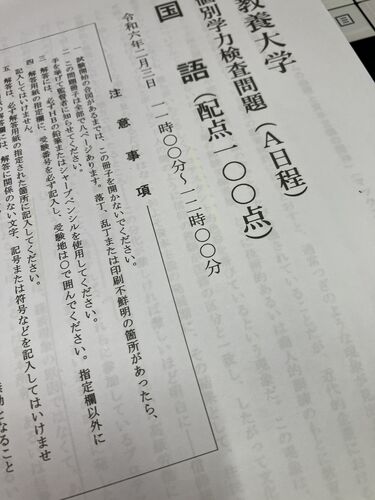 教養大学
個別学力検査問題(A日程)
国語(配点一〇〇点)
令和六年二月三日 一一時〇〇分~一二時〇〇分
注意事項
一 試験開始の合図があるまでは、この冊子を開かないでください。
二 この問題冊子は全部で八ページあります。落丁、乱丁または印刷不鮮明の箇所があったら、
手を挙げて監督者に知らせてください。
三 解答には、必ずHBの鉛筆またはシャープペンシルを使用してください。
四 解答用紙の指定欄に、受験番号を必ず記入し、受験地は〇で囲んでください。指定欄以外に
記入してはいけません。
五 解答は、必ず解答用紙の指定された箇所に記入してください。
の解答欄には、解答に関係のない文字、記号または符号などを記入してはいけませ
となること